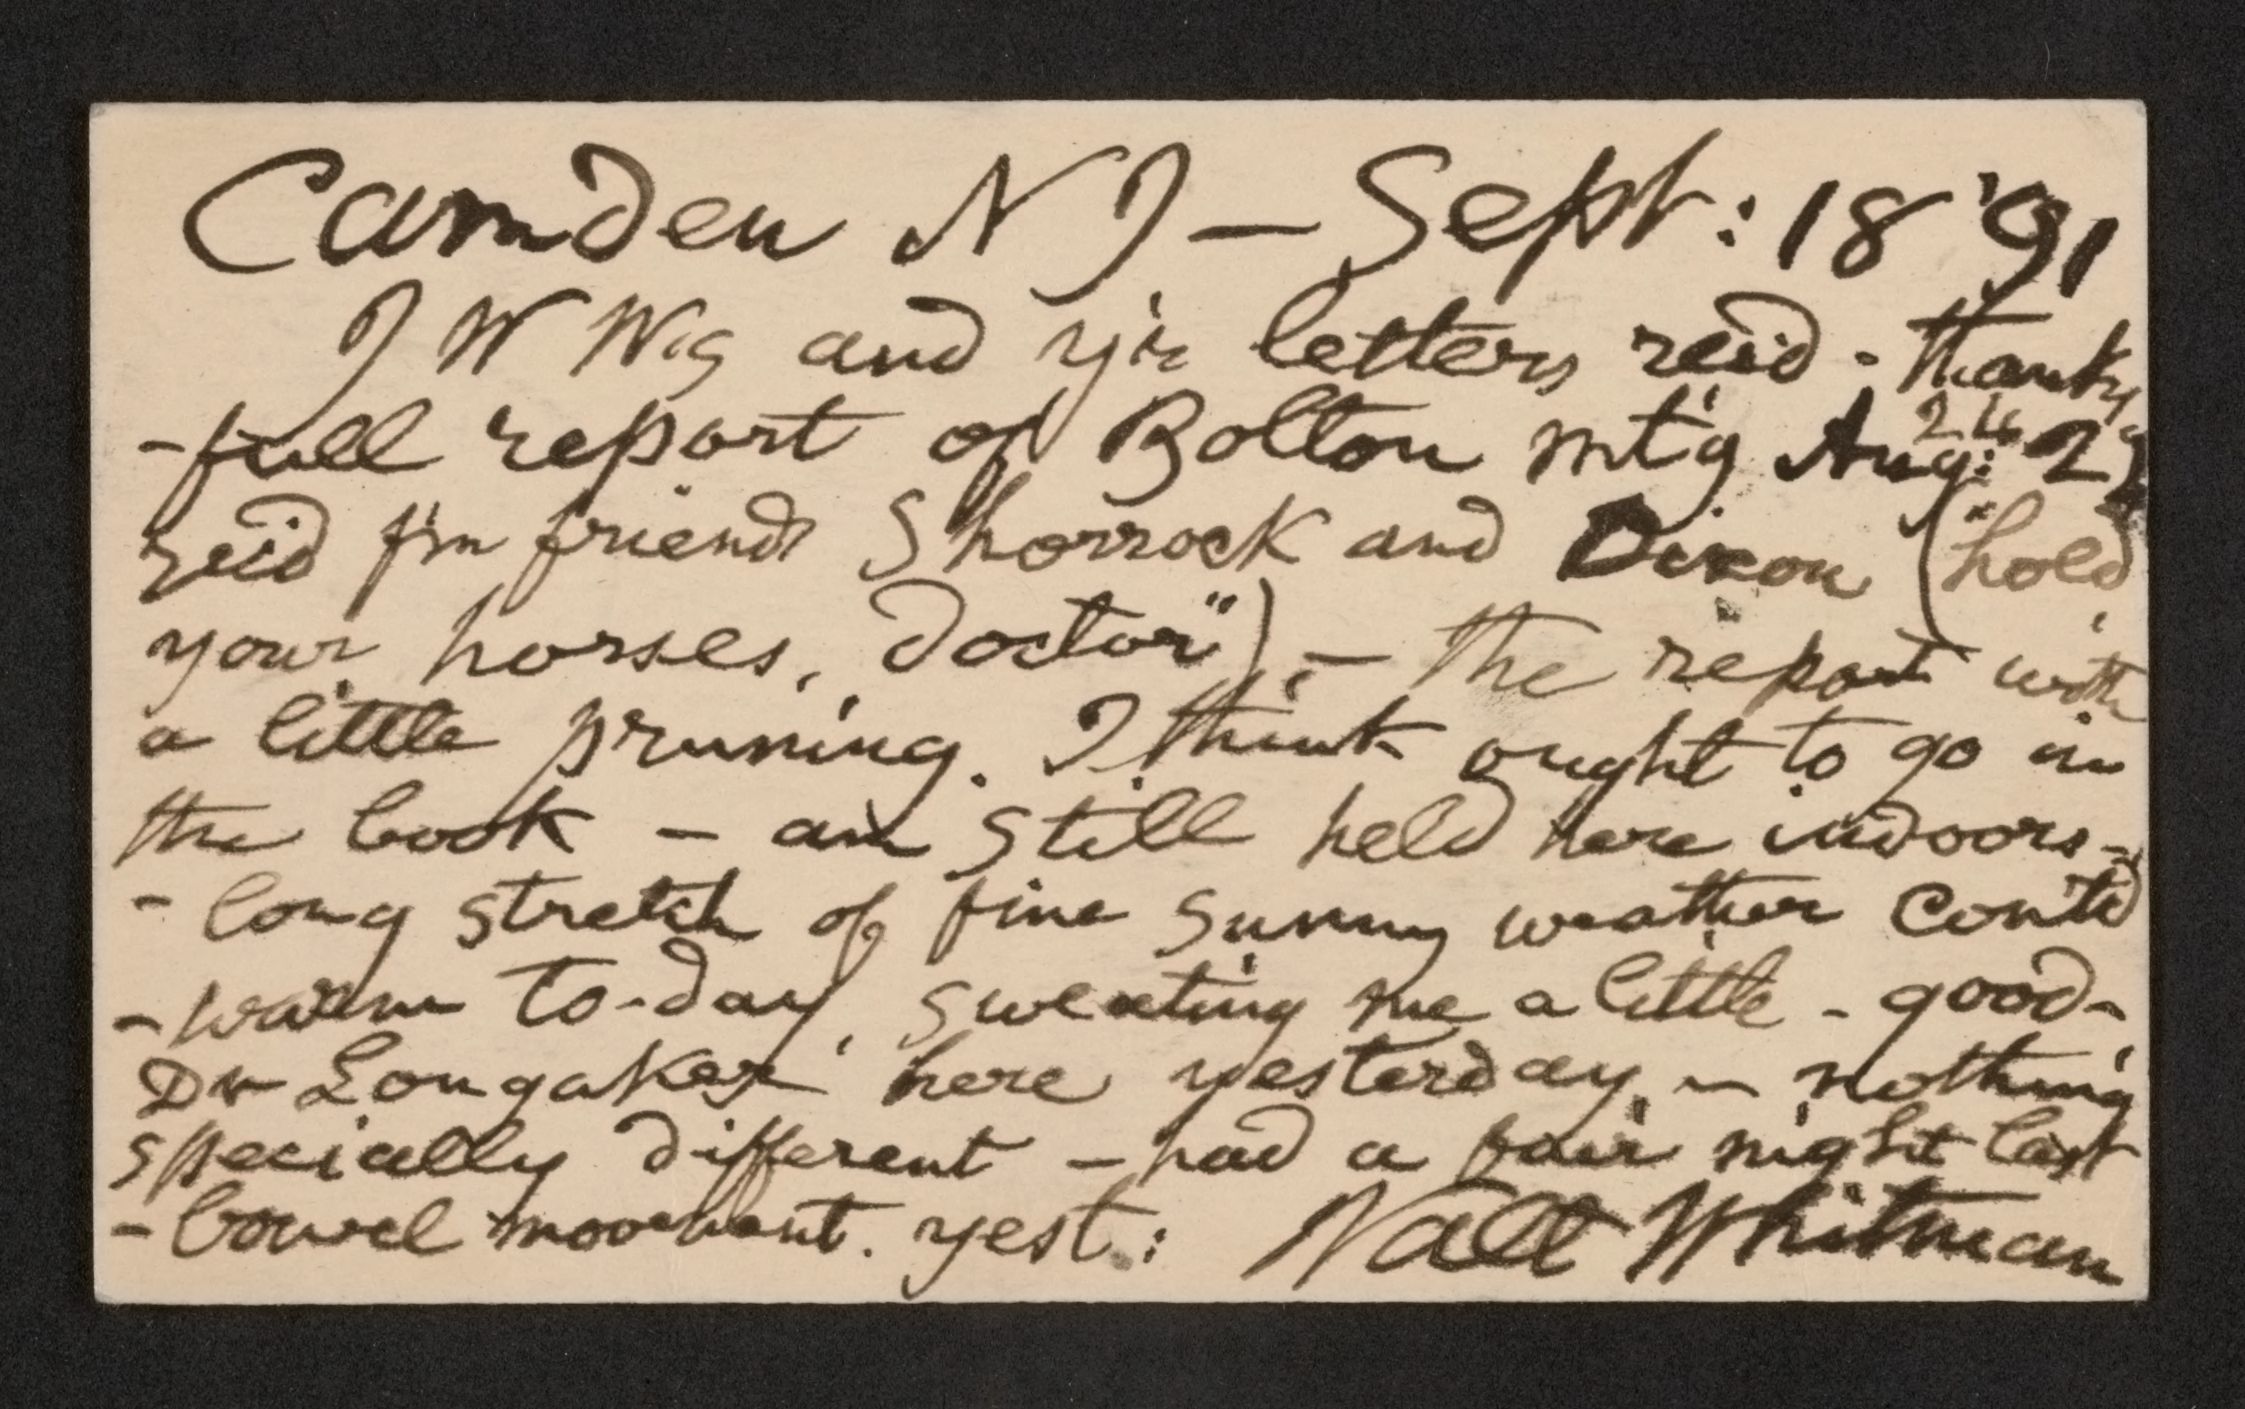 Camden N J — Sept: 18 '91
J W W's and y'r letters rec'd - thanks
- full report of Bolton mt'g Aug: 24
rec'd f'm friends Shorrock and Dixon ("hold
your horses, doctor") — the report with
a little pruning. I think ought to go in
the book — am still held here indoors -
- long stretch of fine sunny weather cont'd
- warm to-day, sweating me a little - good -
Dr Longaker here yesterday, — nothing
specially different — had a fair night last
- bowel movement. yest: Walt Whitman